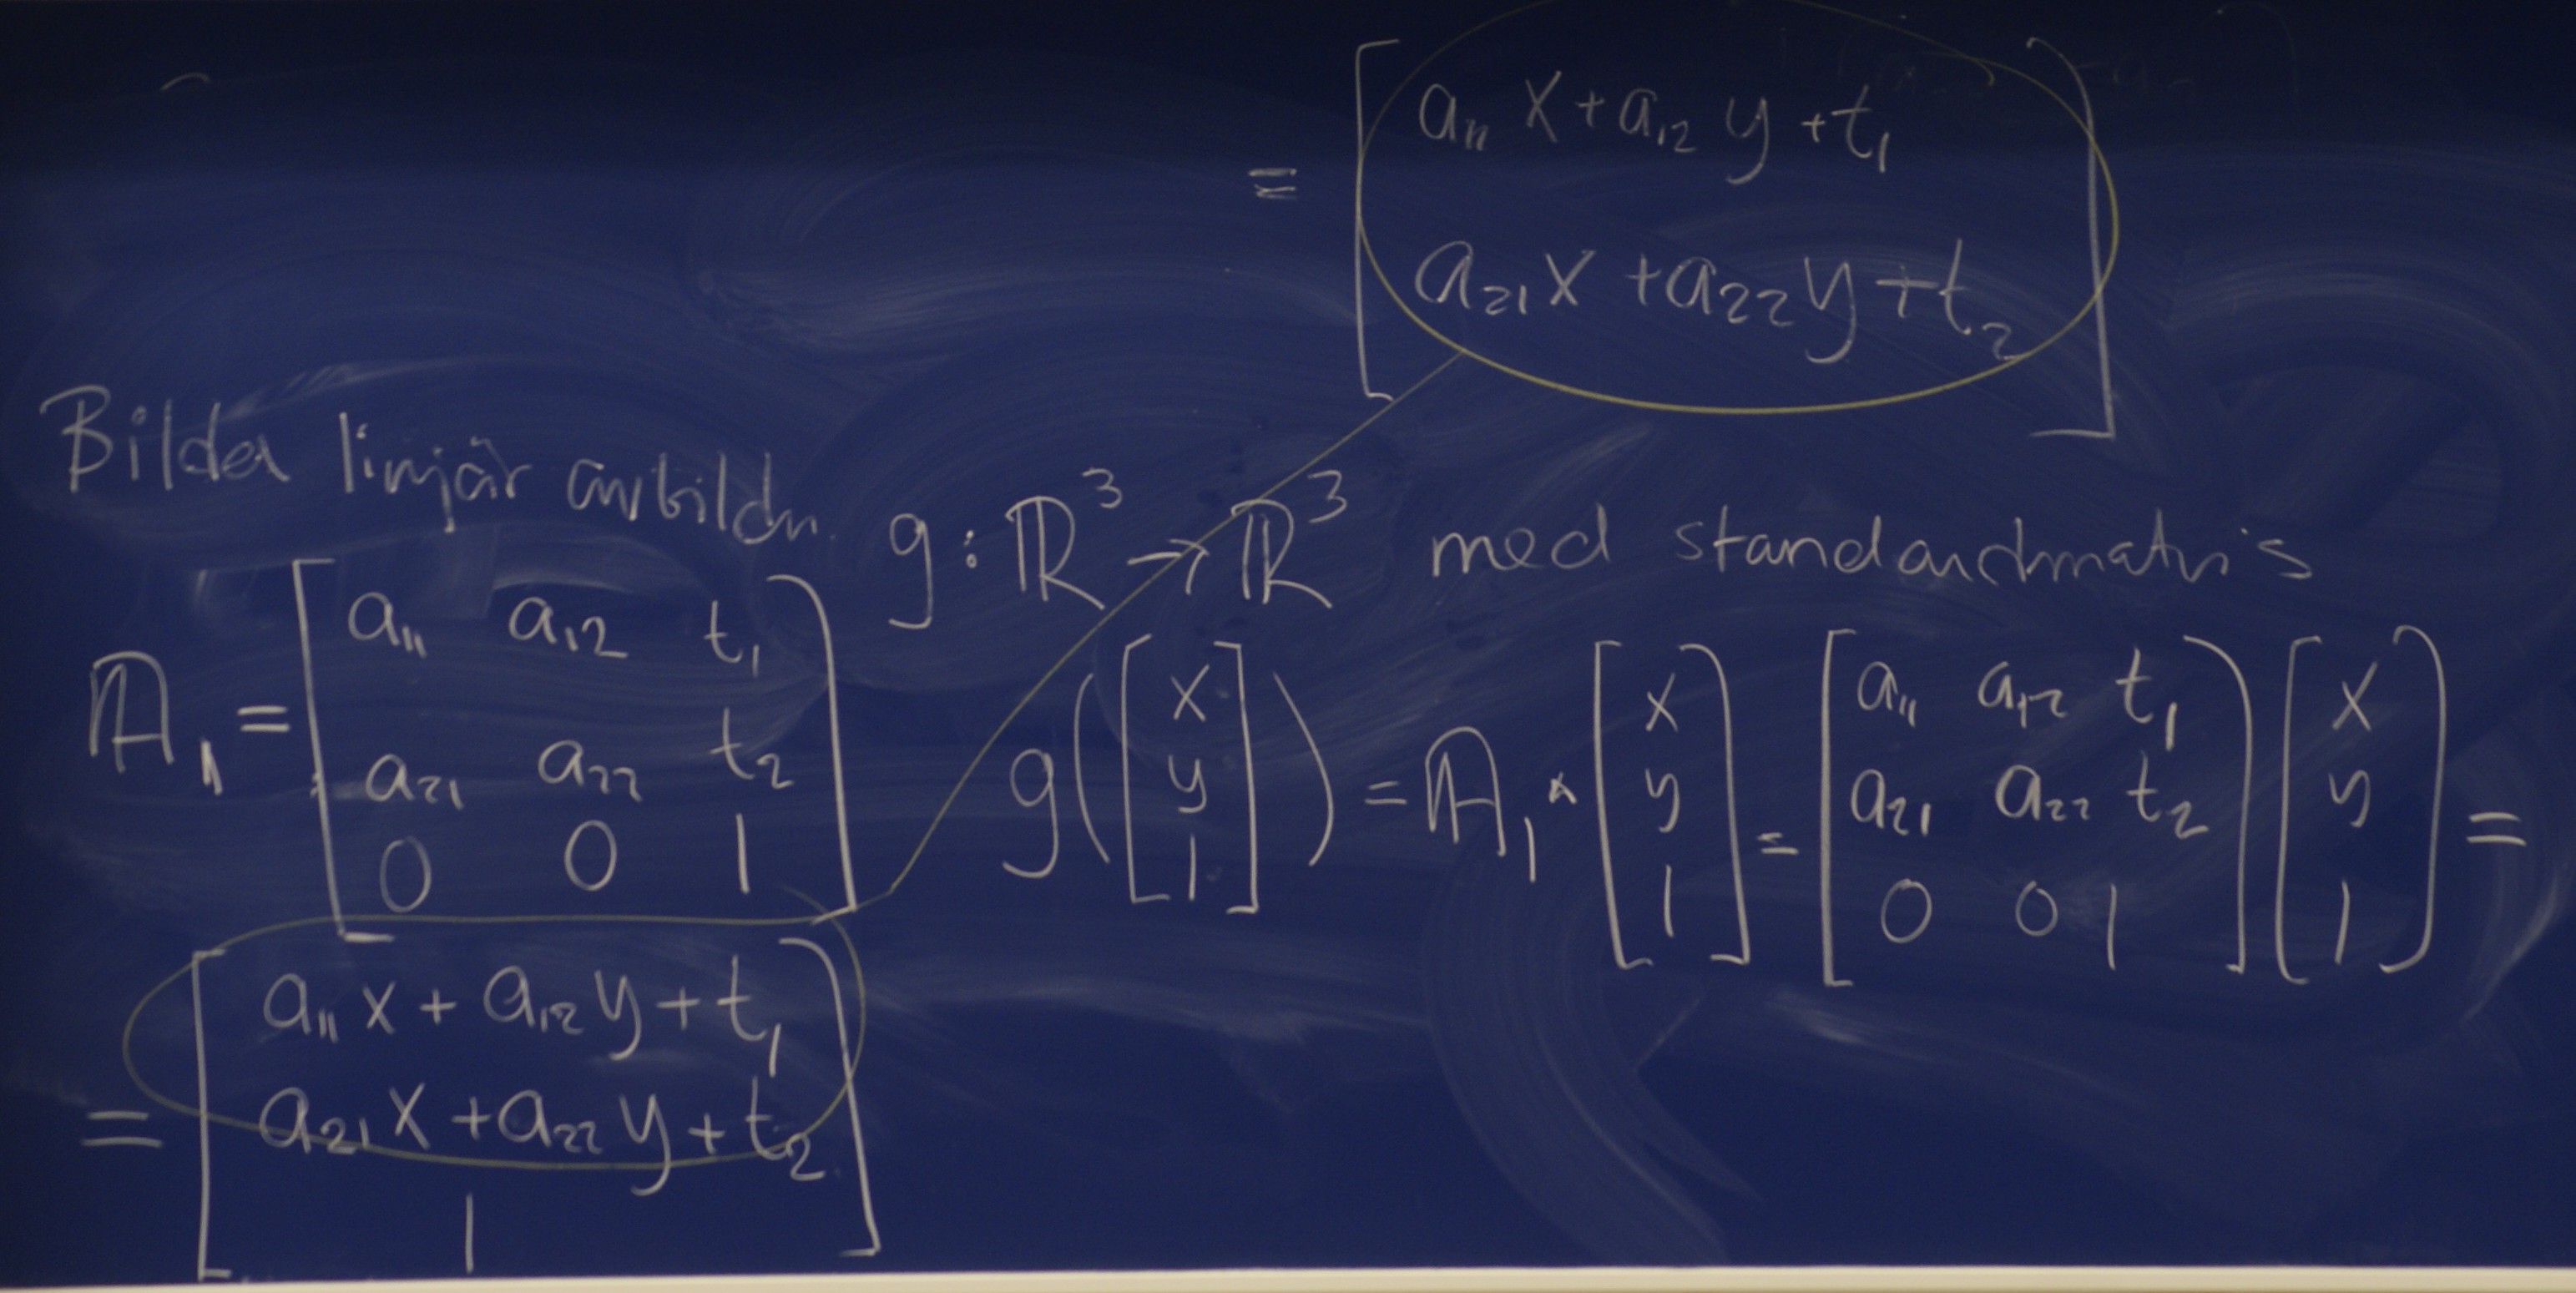 = [a₁₁ x + a₁₂ y + t₁
a₂₁ x + a₂₂ y + t₂]
Bilda linjär avbildn. g : ℝ³ → ℝ³ med standardmatris
A₁ = [a₁₁ a₁₂ t₁
a₂₁ a₂₂ t₂
0 0 1]
g([x
y
1]) = A₁ · [x
y
1] = [a₁₁ a₁₂ t₁
a₂₁ a₂₂ t₂
0 0 1] [x
y
1] =
= [a₁₁ x + a₁₂ y + t₁
a₂₁ x + a₂₂ y + t₂
1]